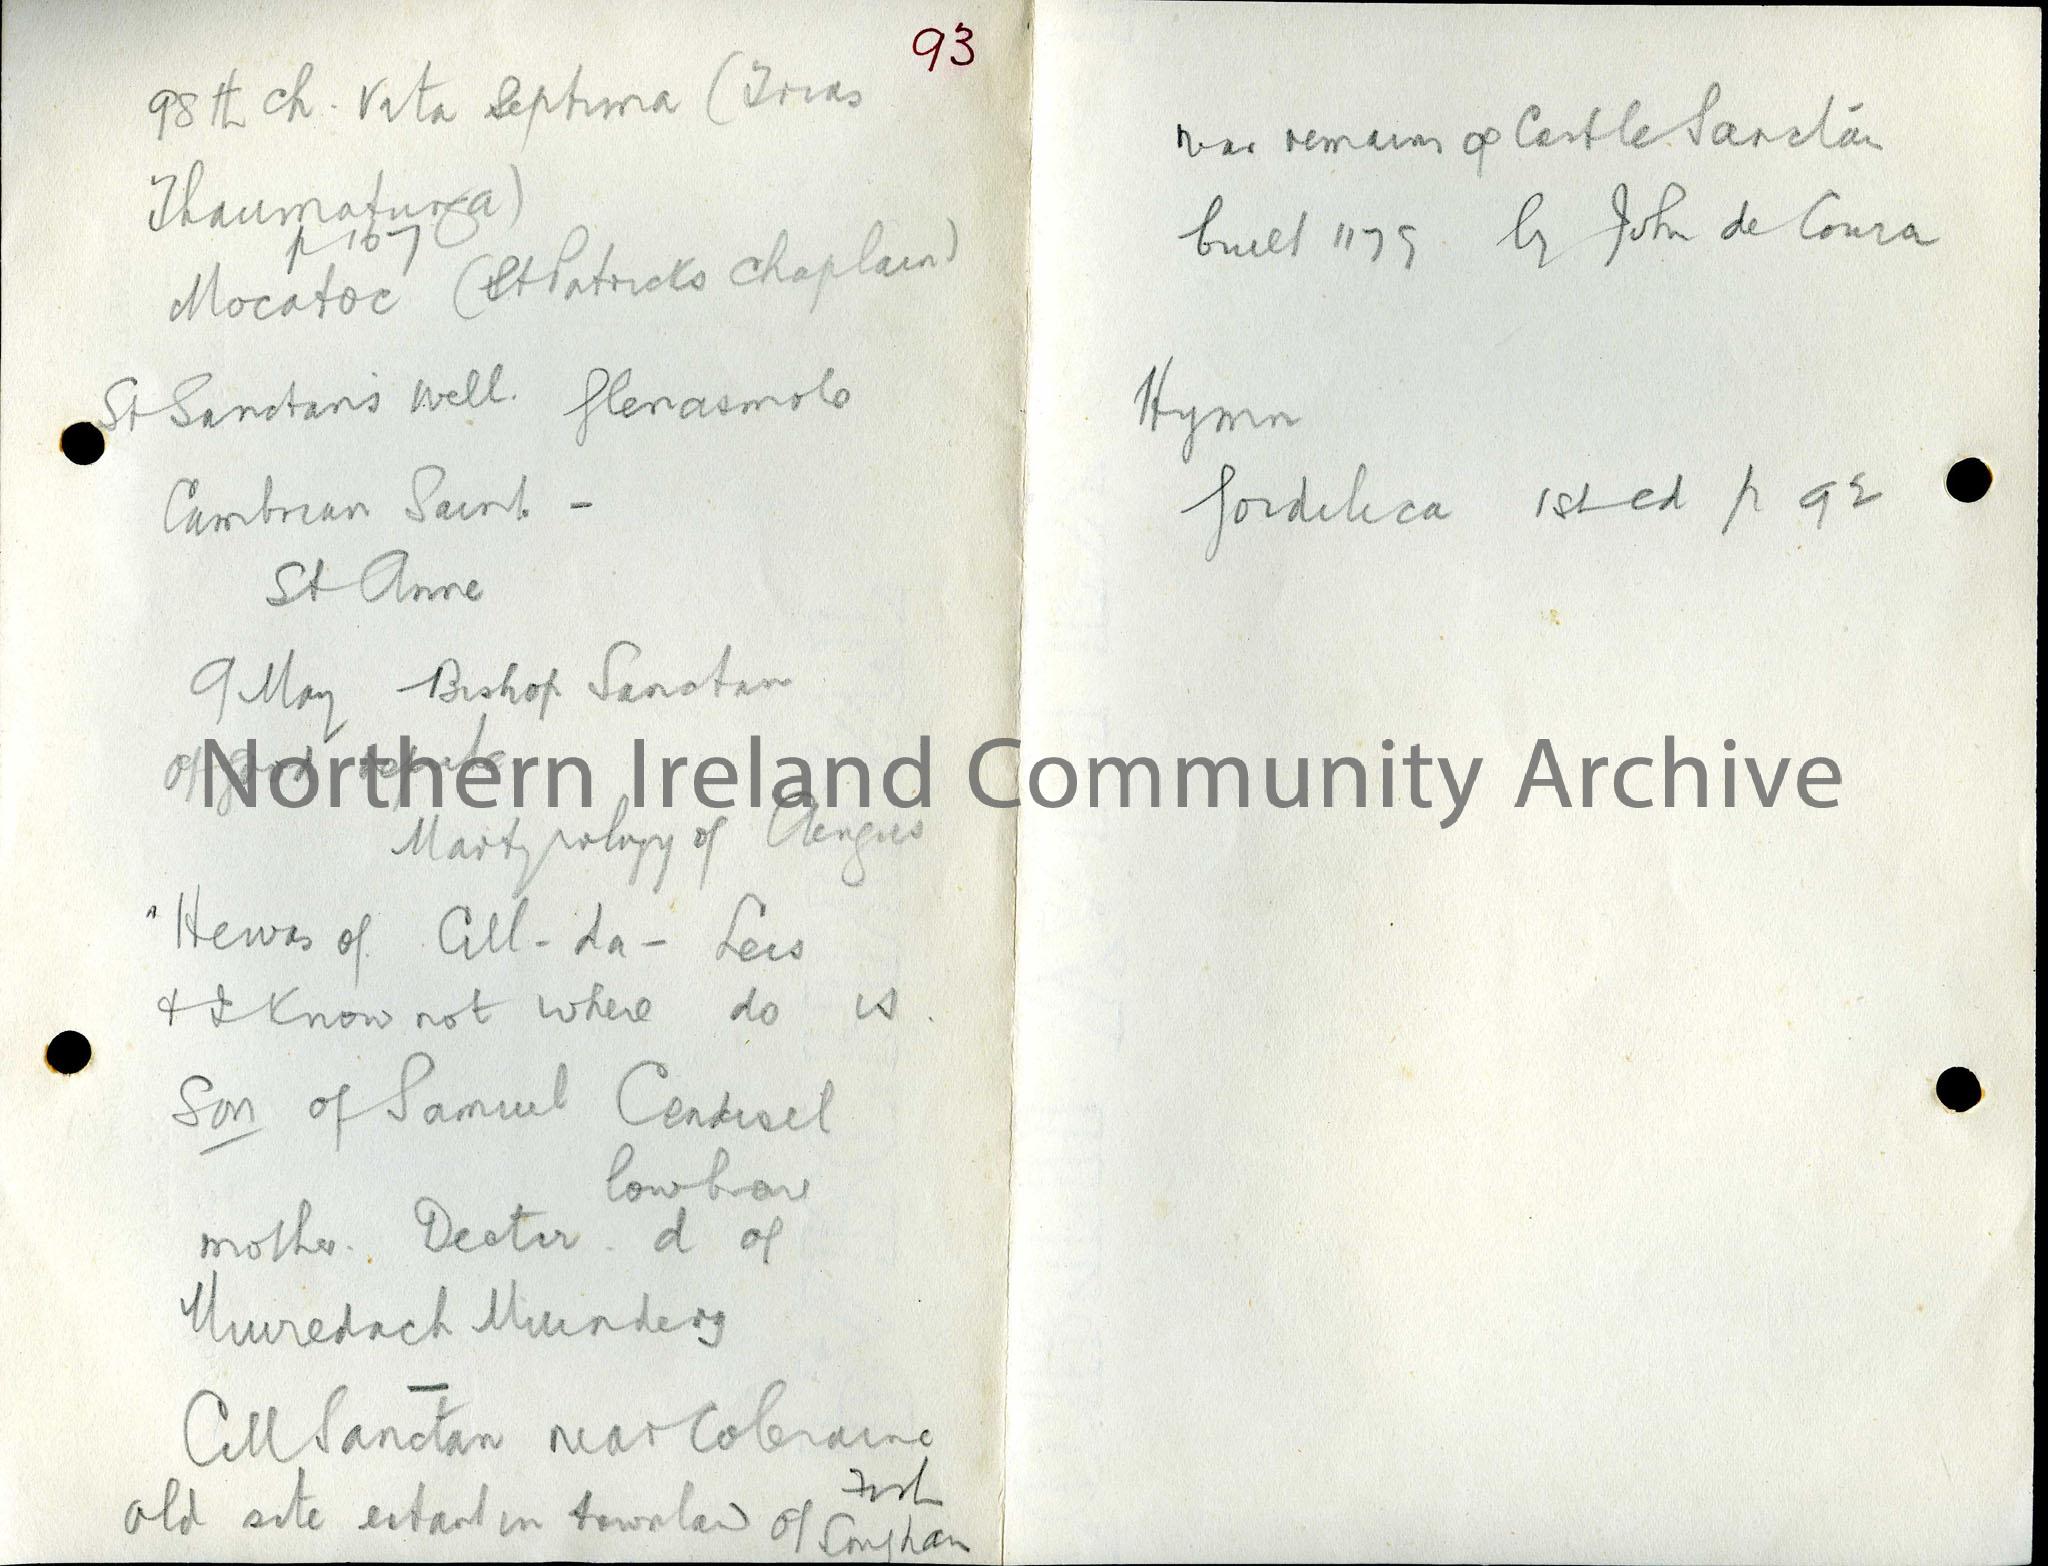 93
98th ch. Vita Septima (Trias
Thaumaturga)
p 167
Mocatoc (St Patricks chaplain)
St Sanctan's Well. Glenasmole
Cambrian Saint -
St Anne
9 May Bishop Sanctan
of good repute
Martyrology of Aengus
"He was of Cill-da-Leis
& I know not where do is.
Son of Samuel Cendisel
low brow
mother. Dectir. d of
Muiredach Muinderg
Cill Sanctan near Coleraine
old site extant in townland of Fish
Loughan
near remains of Castle Sanctan
built 1179 by John de Courcy
Hymn
Goidelica 1st ed p 92
Northern Ireland Community Archive